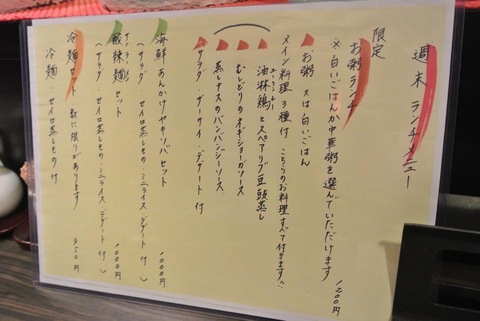 週末ランチメニュー
限定
お粥ランチ
※白いごはんか中華粥を選んでいただけます 1200円
お粥又は白いごはん
メイン料理3種付 こちらのお料理すべて付きます!!
油淋鶏とスペアリブ豆鼓蒸し
むしどりのネギショーガソース
蒸しナスのバンバンジーソース
サラダ・ザーサイ・デザート付
海鮮あんかけヤキソバセット
(サラダ・セイロ蒸しもの・ミニライス・デザート付) 1000円
サンラーメン
酸辣麺セット
(サラダ・セイロ蒸しもの・ミニライス・デザート付) 1000円
冷麺セット 数に限りがあります
冷麺・セイロ蒸しもの付 950円